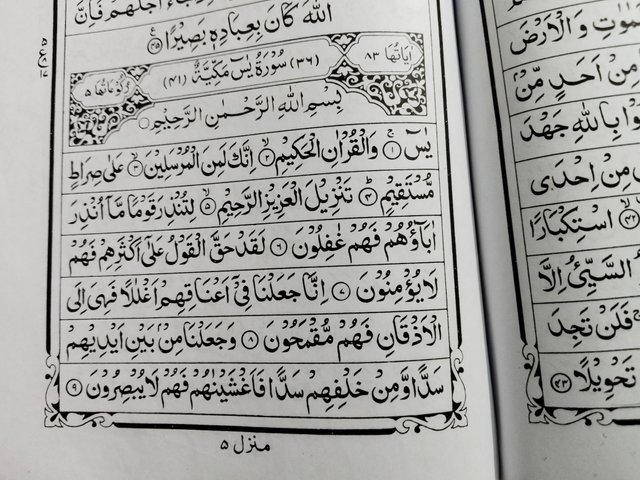 اللّٰهَ كَانَ بِعِبَادِهٖ بَصِيْرًا ﴿۴۵﴾
اٰيَاتُهَا ۸۳
(۳۶) سُوْرَةُ يٰسٓ مَكِّيَّةٌ (۴۱)
رُكُوْعَاتُهَا ۵
بِسْمِ اللّٰهِ الرَّحْمٰنِ الرَّحِيْمِ
يٰسٓ ﴿۱﴾ وَالْقُرْاٰنِ الْحَكِيْمِ ﴿۲﴾ اِنَّكَ لَمِنَ الْمُرْسَلِيْنَ ﴿۳﴾ عَلٰى صِرَاطٍ
مُّسْتَقِيْمٍ ﴿۴﴾ تَنْزِيْلَ الْعَزِيْزِ الرَّحِيْمِ ﴿۵﴾ لِتُنْذِرَ قَوْمًا مَّاۤ اُنْذِرَ
اٰبَآؤُهُمْ فَهُمْ غٰفِلُوْنَ ﴿۶﴾ لَقَدْ حَقَّ الْقَوْلُ عَلٰٓى اَكْثَرِهِمْ فَهُمْ
لَا يُؤْمِنُوْنَ ﴿۷﴾ اِنَّا جَعَلْنَا فِيْۤ اَعْنَاقِهِمْ اَغْلٰلًا فَهِيَ اِلَى
الْاَذْقَانِ فَهُمْ مُّقْمَحُوْنَ ﴿۸﴾ وَجَعَلْنَا مِنْۢ بَيْنِ اَيْدِيْهِمْ
سَدًّا وَّمِنْ خَلْفِهِمْ سَدًّا فَاَغْشَيْنٰهُمْ فَهُمْ لَا يُبْصِرُوْنَ ﴿۹﴾
منزل ۵
وَالْاَرْضِ
مِنْ اَحَدٍ مِّنْۢ
بِاللّٰهِ جَهْدَ
مِنْ اِحْدَى
﴿۴۲﴾ اسْتِكْبَارًا
السَّيِّئُ اِلَّا
فَلَنْ تَجِدَ
تَحْوِيْلًا ﴿۴۳﴾